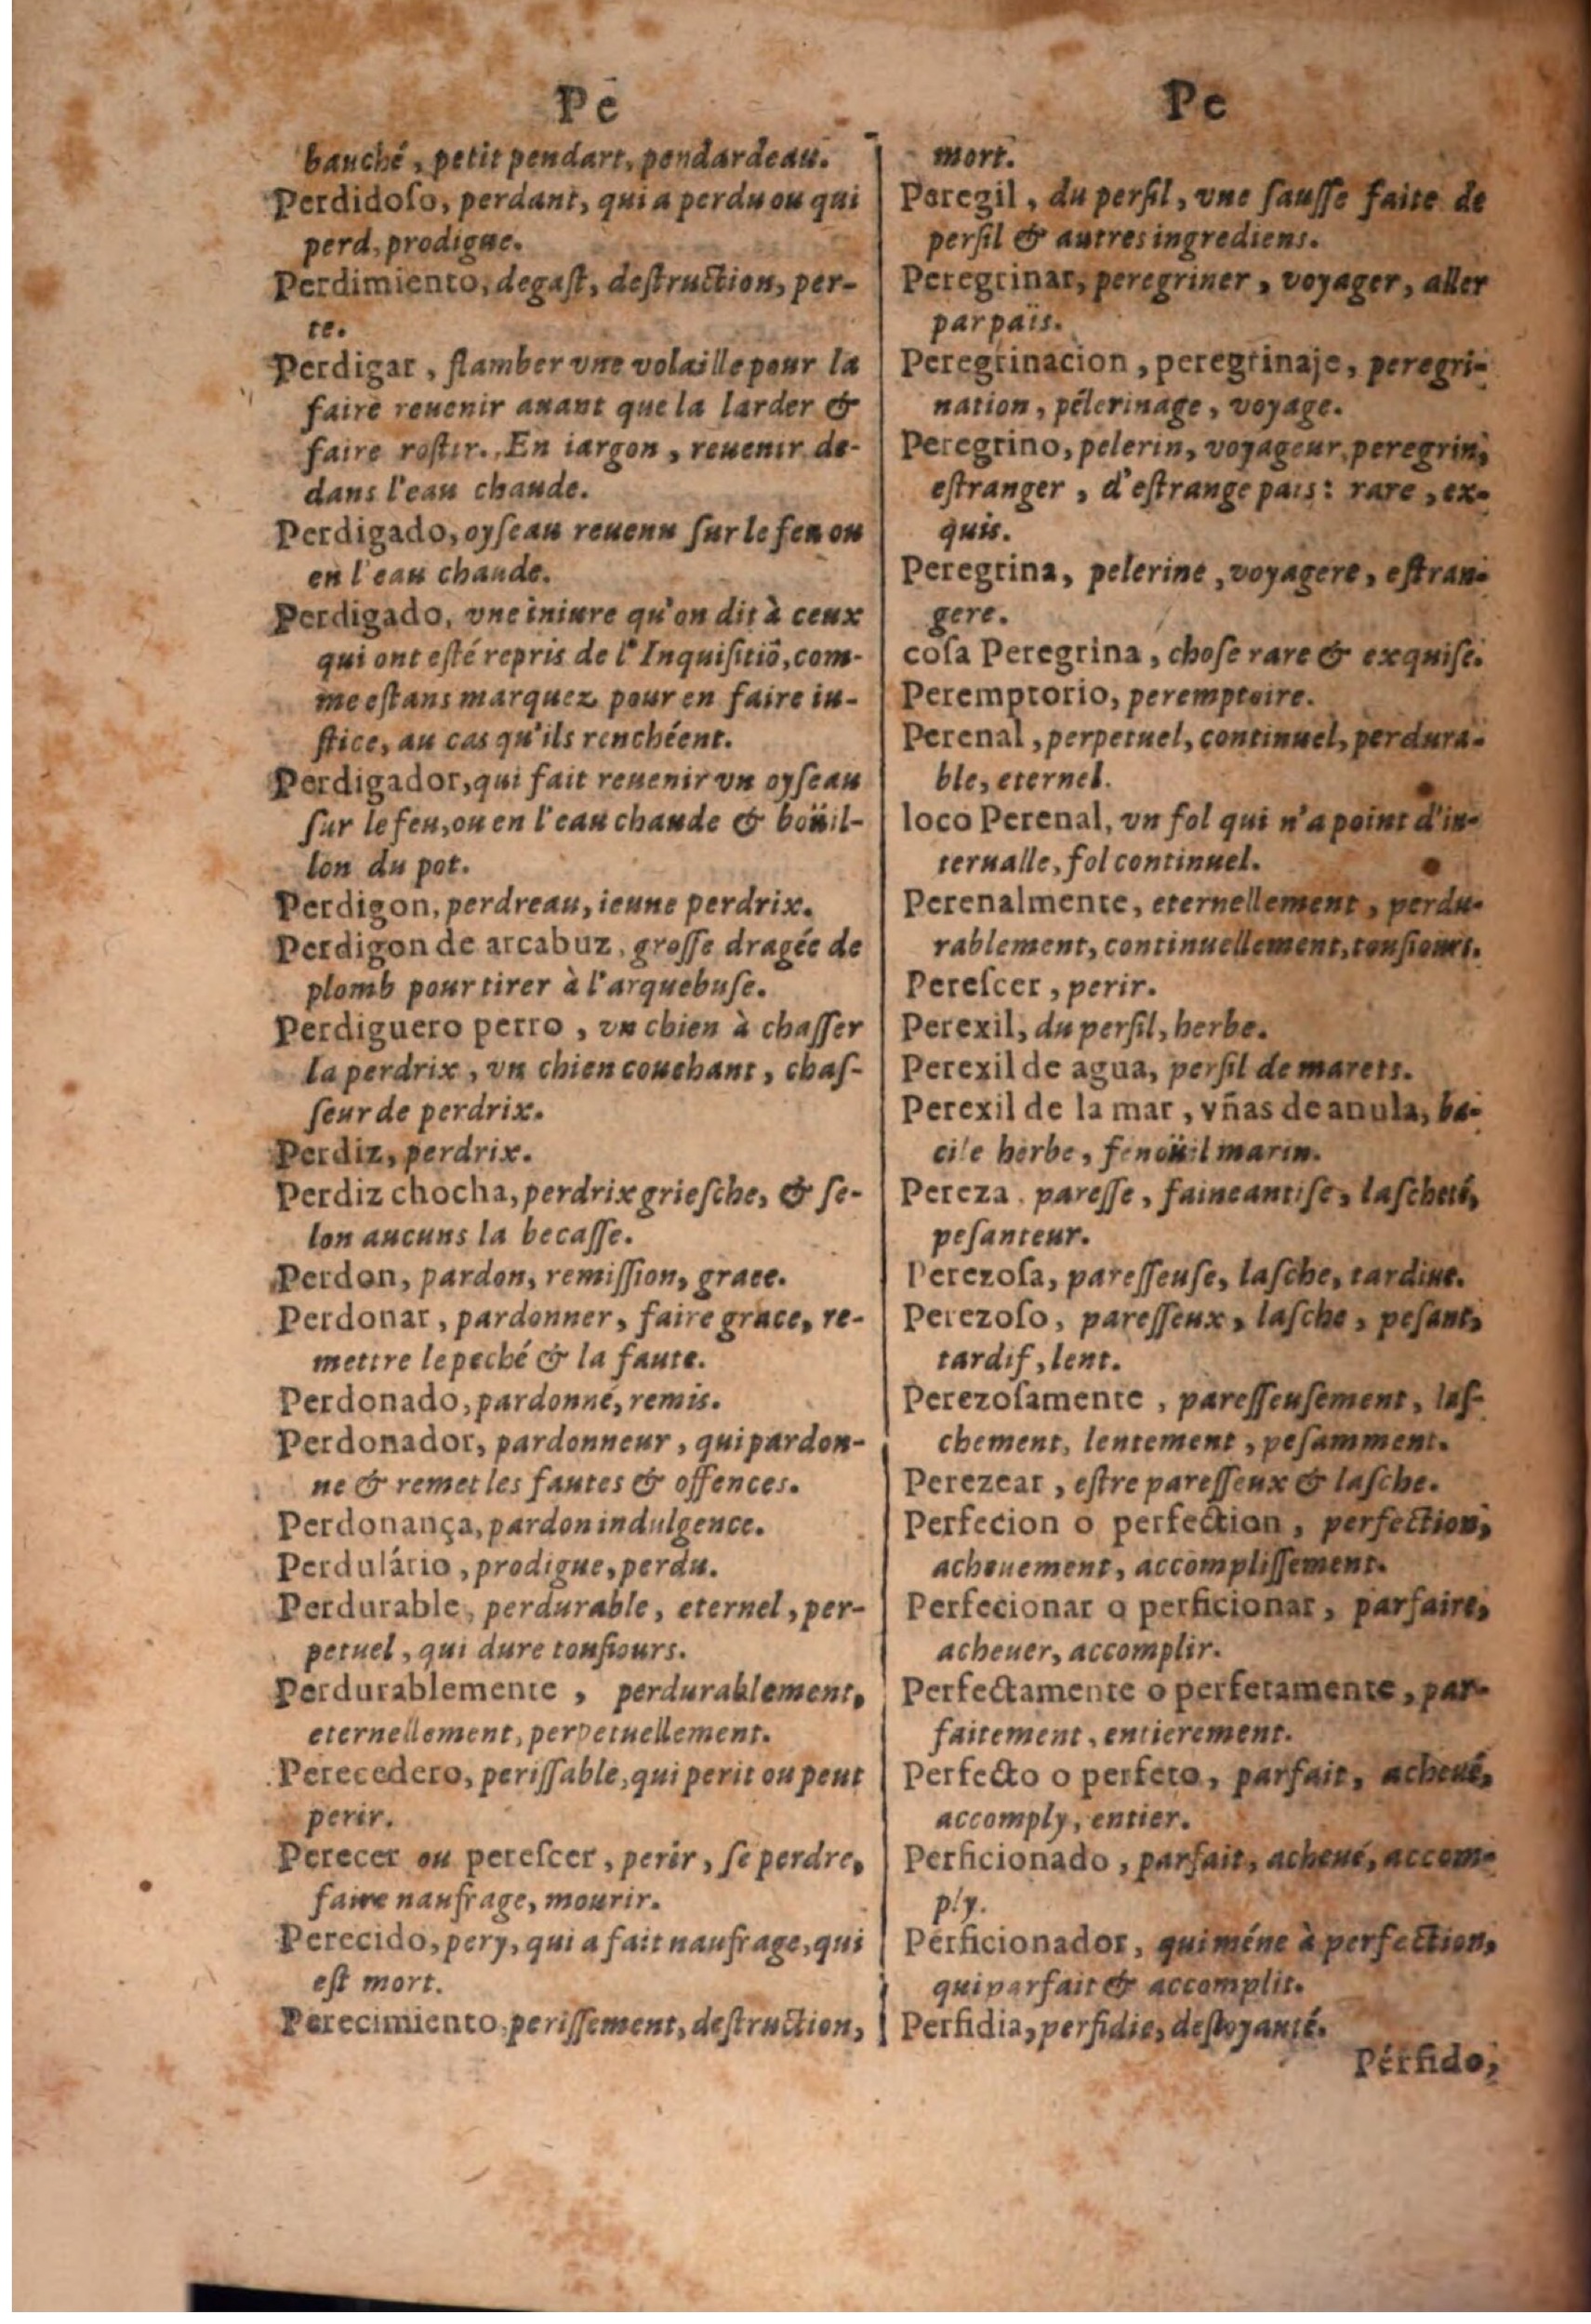 Pe
bauché, petit pendart, pendardeau.
Perdidoſo, perdant, qui a perdu ou qui
perd, prodigue.
Perdimiento, degaſt, deſtruction, per-
te.
Perdigar, flamber vne volaille pour la
faire reuenir auant que la larder &
faire roſtir. En iargon, reuenir de-
dans l'eau chaude.
Perdigado, oyſeau reuenu ſur le feu ou
en l'eau chaude.
Perdigado, vne iniure qu'on dit à ceux
qui ont eſté repris de l'Inquiſitiõ, com-
me eſtans marquez pour en faire iu-
ſtice, au cas qu'ils renchéent.
Perdigador, qui fait reuenir vn oyſeau
ſur le feu, ou en l'eau chaude & boüil-
lon du pot.
Perdigon, perdreau, ieune perdrix.
Perdigon de arcabuz, groſſe dragée de
plomb pour tirer à l'arquebuſe.
Perdiguero perro, vn chien à chaſſer
la perdrix, vn chien couchant, chaſ-
ſeur de perdrix.
Perdiz, perdrix.
Perdiz chocha, perdrix grieſche, & ſe-
lon aucuns la becaſſe.
Perdon, pardon, remiſſion, grace.
Perdonar, pardonner, faire grace, re-
mettre le peché & la faute.
Perdonado, pardonné, remis.
Perdonador, pardonneur, qui pardon-
ne & remet les fautes & offences.
Perdonança, pardon indulgence.
Perdulário, prodigue, perdu.
Perdurable, perdurable, eternel, per-
petuel, qui dure touſiours.
Perdurablemente, perdurablement,
eternellement, perpetuellement.
Perecedero, periſſable, qui perit ou peut
perir.
Perecer ou pereſcer, perir, ſe perdre,
faire naufrage, mourir.
Perecido, pery, qui a fait naufrage, qui
eſt mort.
Perecimiento, periſſement, deſtruction,
Pe
mort.
Peregil, du perſil, vne ſauſſe faite de
perſil & autres ingrediens.
Peregrinar, peregriner, voyager, aller
par païs.
Peregrinacion, peregrinaje, peregri-
nation, pélerinage, voyage.
Peregrino, pelerin, voyageur, peregrin,
eſtranger, d'eſtrange pais: rare, ex-
quis.
Peregrina, pelerine, voyagere, eſtran-
gere.
coſa Peregrina, choſe rare & exquiſe.
Peremptorio, peremptoire.
Perenal, perpetuel, continuel, perdura-
ble, eternel.
loco Perenal, vn fol qui n'a point d'in-
terualle, fol continuel.
Perenalmente, eternellement, perdu-
rablement, continuellement, touſiours.
Pereſcer, perir.
Perexil, du perſil, herbe.
Perexil de agua, perſil de marets.
Perexil de la mar, vñas de anula, ba-
cile herbe, fenoüil marin.
Pereza, pareſſe, faineantiſe, laſcheté,
peſanteur.
Perezoſa, pareſſeuſe, laſche, tardiue.
Perezoſo, pareſſeux, laſche, peſant,
tardif, lent.
Perezoſamente, pareſſeuſement, laſ-
chement, lentement, peſamment.
Perezear, eſtre pareſſeux & laſche.
Perfecion o perfection, perfection,
acheuement, accompliſſement.
Perfecionar o perficionar, parfaire,
acheuer, accomplir.
Perfectamente o perfetamente, par-
faitement, entierement.
Perfecto o perfeto, parfait, acheué,
accomply, entier.
Perficionado, parfait, acheué, accom-
ply.
Perficionador, qui méne à perfection,
qui parfait & accomplit.
Perfidia, perfidie, desloyauté.
Pérfido,